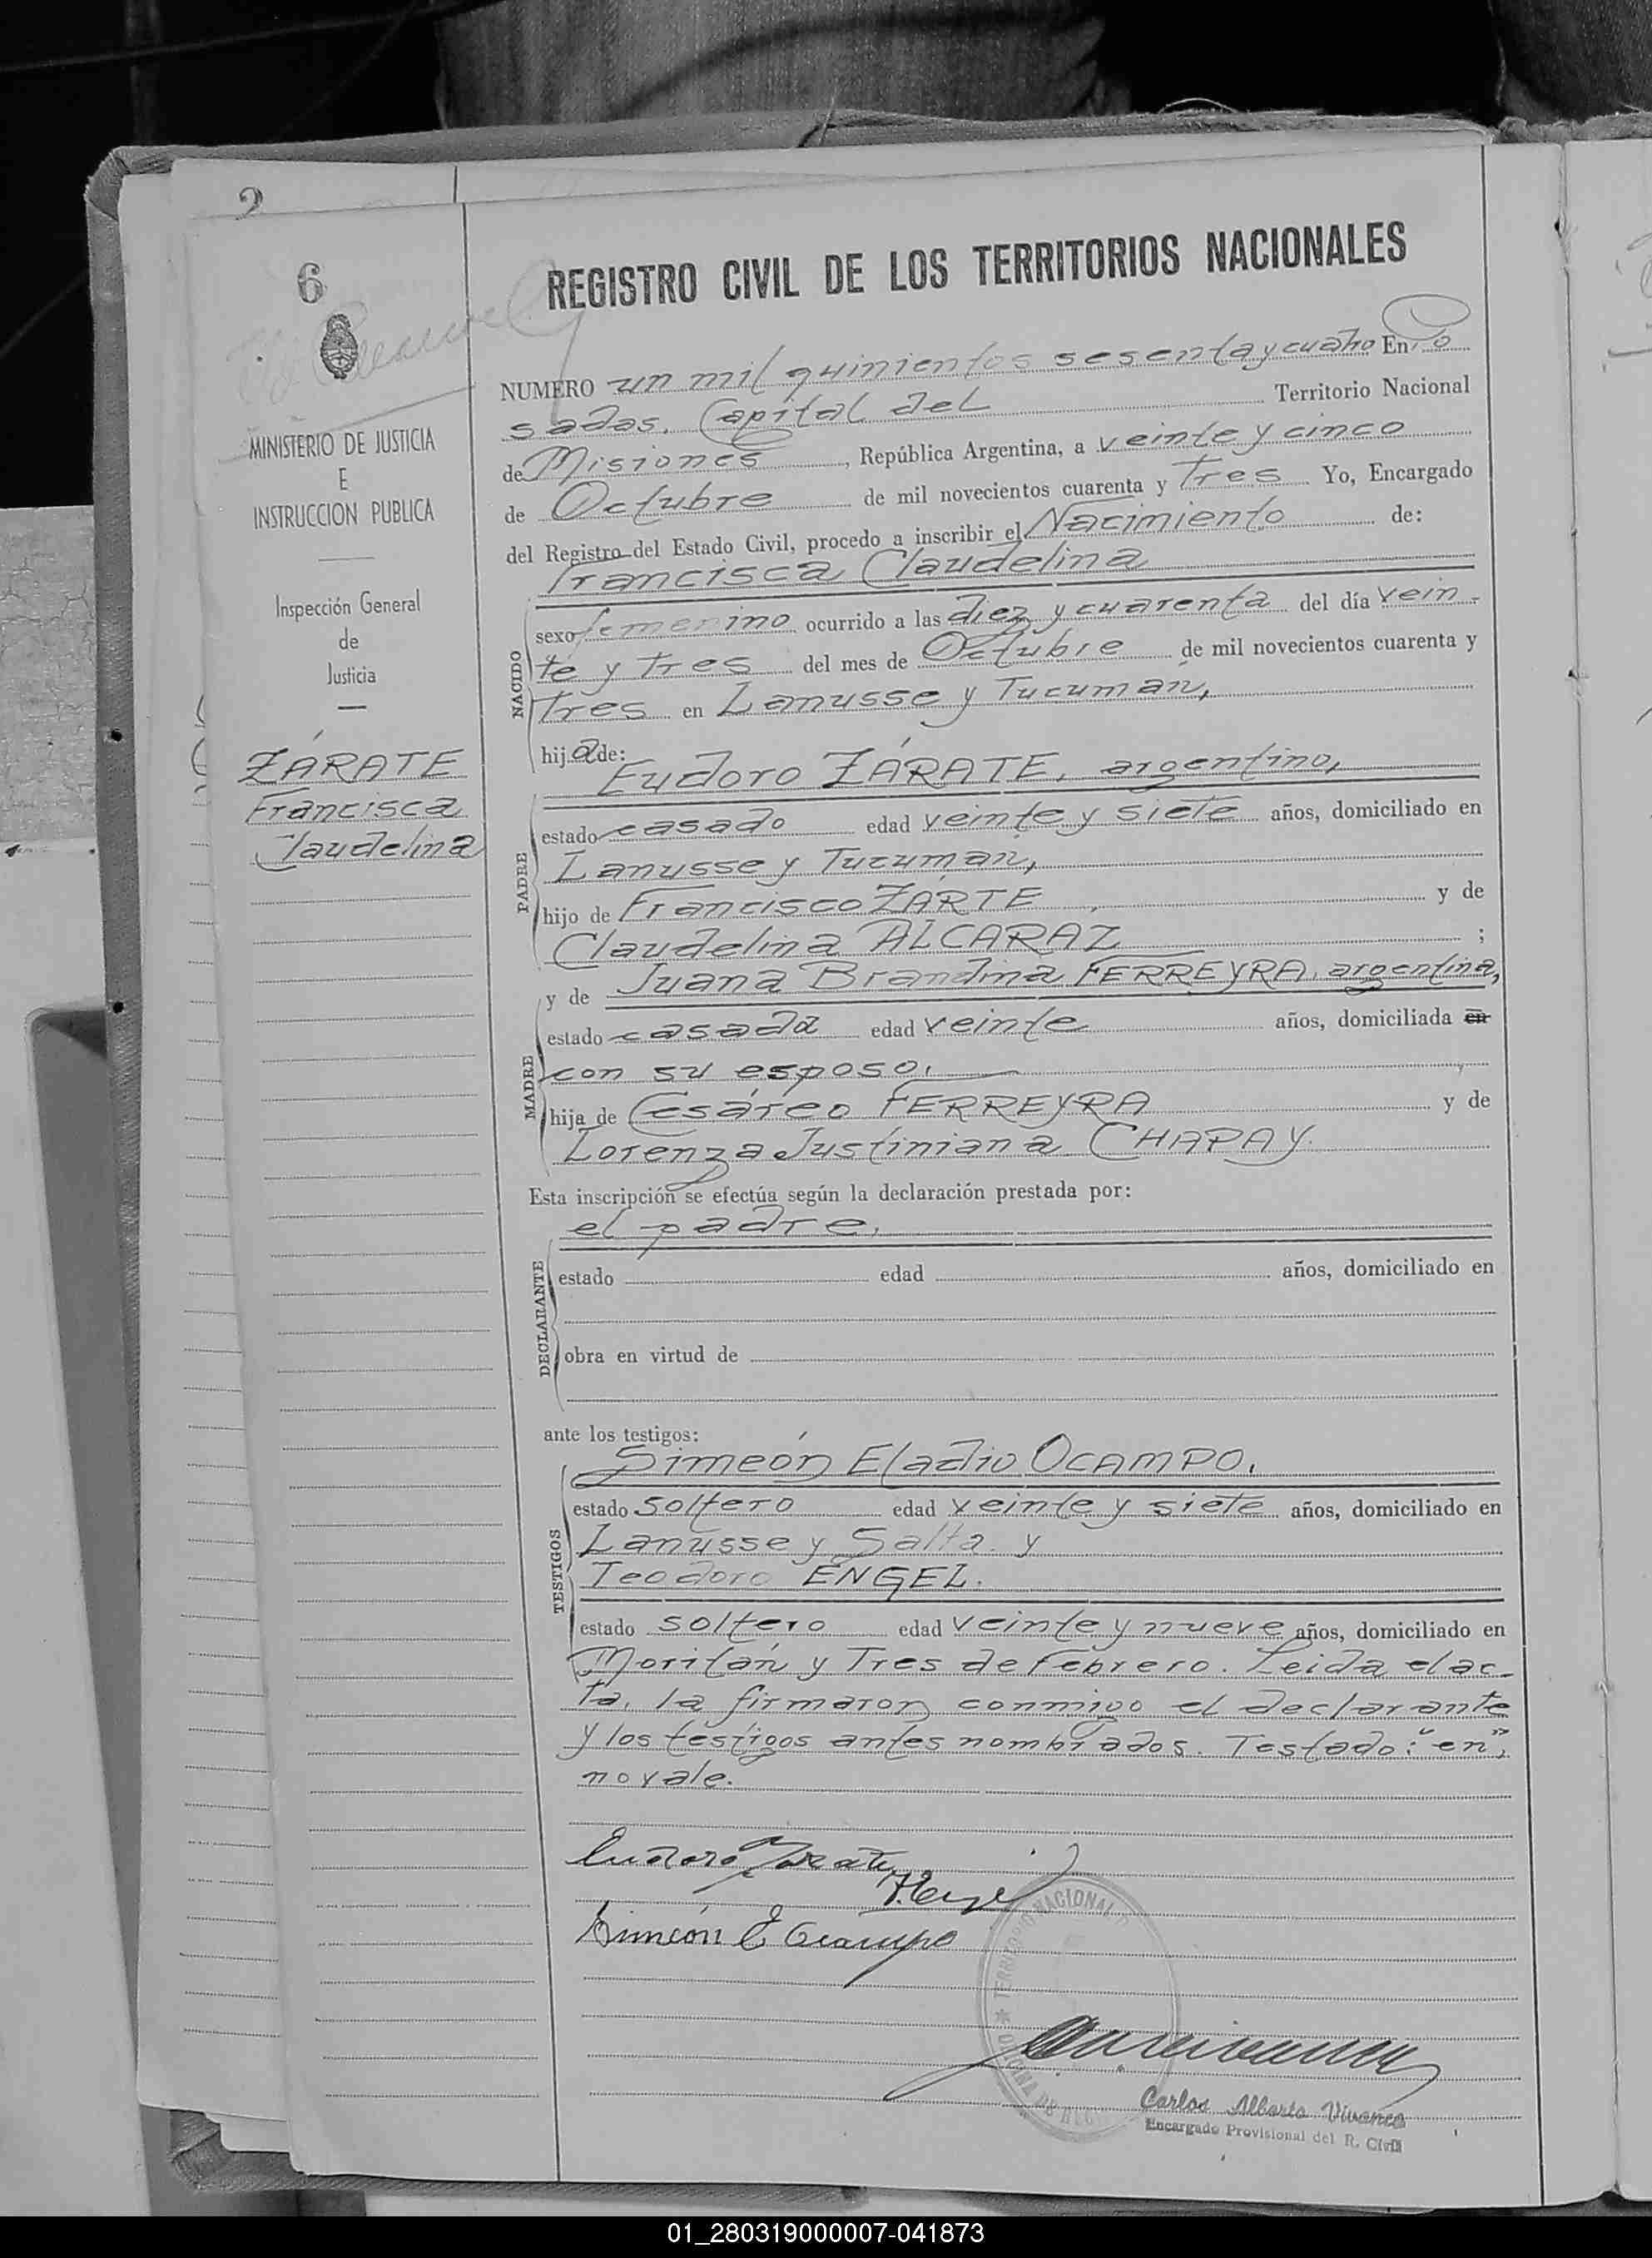 2
6
MINISTERIO DE JUSTICIA
E
INSTRUCCION PUBLICA
Inspección General
de
Justicia
ZÁRATE
Francisca
Claudelina
REGISTRO CIVIL DE LOS TERRITORIOS NACIONALES
NUMERO un mil quinientos sesenta y cuatro En Po
sadas, Capital del Territorio Nacional
de Misiones, República Argentina, a veinte y cinco
de Octubre de mil novecientos cuarenta y tres Yo, Encargado
del Registro del Estado Civil, procedo a inscribir el Nacimiento de:
Francisca Claudelina
NACIDO
sexo femenino ocurrido a las diez y cuarenta del día vein-
te y tres del mes de Octubre de mil novecientos cuarenta y
tres en Lanusse y Tucumán,
hija de:
Eudoro ZÁRATE, argentino,
PADRE
estado casado edad veinte y siete años, domiciliado en
Lanusse y Tucumán,
hijo de Francisco ZARTE, y de
Claudelina ALCARAZ ;
y de Juana Brandina FERREYRA, argentina,
MADRE
estado casada edad veinte años, domiciliada en
con su esposo,
hija de Cesáreo FERREYRA y de
Lorenza Justiniana CHAPAY.
Esta inscripción se efectúa según la declaración prestada por:
el padre,
DECLARANTE
estado edad años, domiciliado en
obra en virtud de
ante los testigos:
Simeón Eladio OCAMPO,
TESTIGOS
estado soltero edad veinte y siete años, domiciliado en
Lanusse y Salta y
Teodoro ENGEL.
estado soltero edad veinte y nueve años, domiciliado en
Moritán y Tres de Febrero. Leida el ac-
ta, la firmaron conmigo el declarante
y los testigos antes nombrados. Testado: "en",
no vale.
Eudoro Zarate
T. Engel
Simeón E Ocampo
TERRITORIO NACIONAL
Carlos Alberto Vivanco
Encargado Provisional del R. Civil
01_280319000007-041873